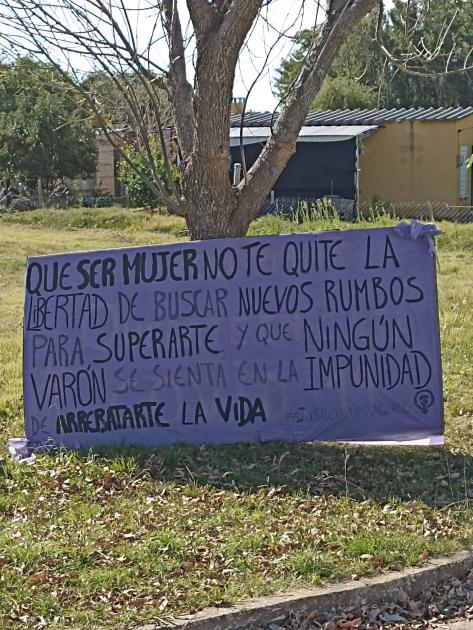 QUE SER MUJER NO TE QUITE LA
LIBERTAD DE BUSCAR NUEVOS RUMBOS
PARA SUPERARTE, Y QUE NINGÚN
VARÓN SE SIENTA EN LA IMPUNIDAD
DE ARREBATARTE LA VIDA